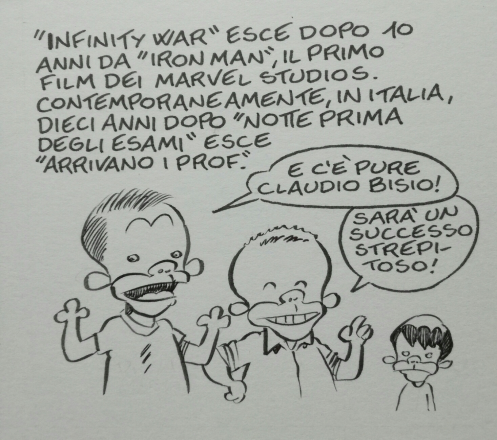 "INFINITY WAR" ESCE DOPO 10
ANNI DA "IRON MAN", IL PRIMO
FILM DEI MARVEL STUDIOS.
CONTEMPORANEAMENTE, IN ITALIA,
DIECI ANNI DOPO "NOTTE PRIMA
DEGLI ESAMI" ESCE
"ARRIVANO I PROF".
E C'È PURE
CLAUDIO BISIO!
SARÀ UN
SUCCESSO
STREPI-
TOSO!